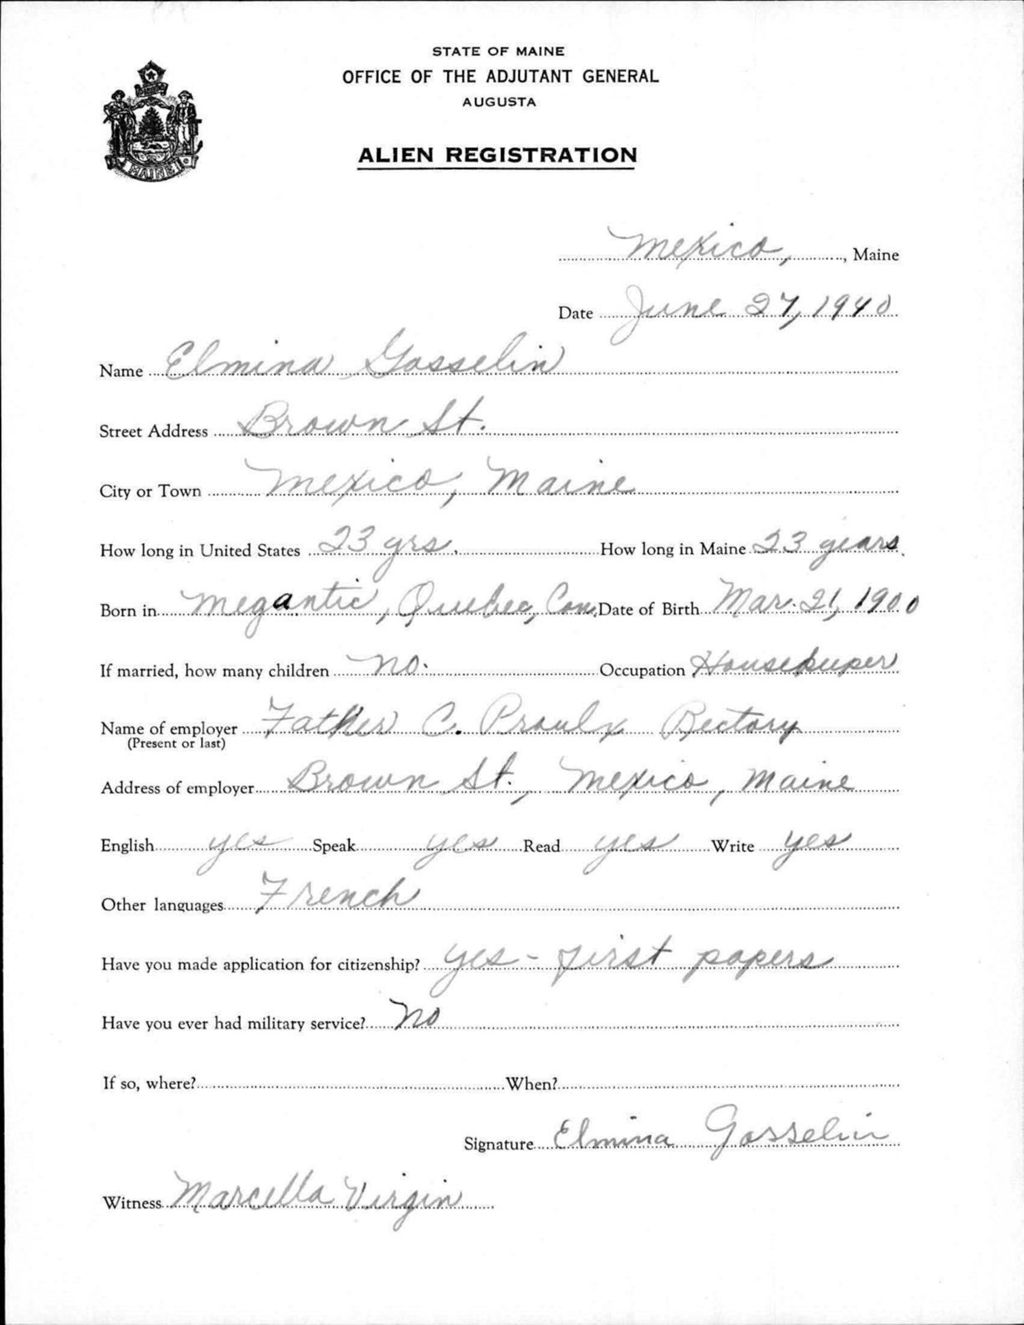 STATE OF MAINE
OFFICE OF THE ADJUTANT GENERAL
AUGUSTA
ALIEN REGISTRATION
MAINE
Mexico, , Maine
Date June 27, 1940
Name Elmina Gosselin
Street Address Brown St.
City or Town Mexico, Maine
How long in United States 23 yrs. How long in Maine 23 years.
Born in Megantic, Quebec, Can. Date of Birth Mar. 21, 1900
If married, how many children no. Occupation Housekeeper
Name of employer Father C. Proulx Rectory
(Present or last)
Address of employer Brown St., Mexico, Maine
English yes Speak yes Read yes Write yes
Other languages French
Have you made application for citizenship? yes - first papers
Have you ever had military service? No
If so, where? When?
Signature Elmina Gosselin
Witness Marcella Virgin